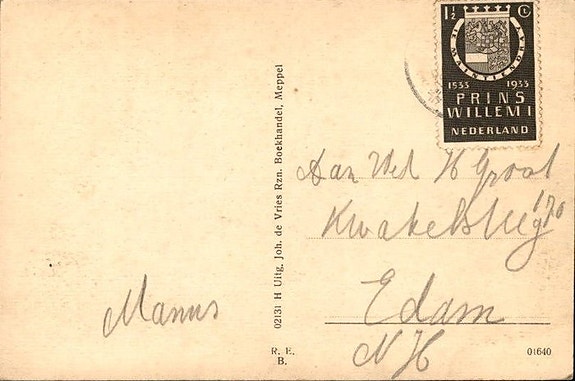 1½ Ct
JE MAINTIENDRAY
1533 1933
PRINS
WILLEM I
NEDERLAND
02131 H Uitg. Joh. de Vries Rzn. Boekhandel, Meppel
Aan Wed H Groot
Kwakelsteeg
170
Edam
NH
Manus
R. E.
B.
01640